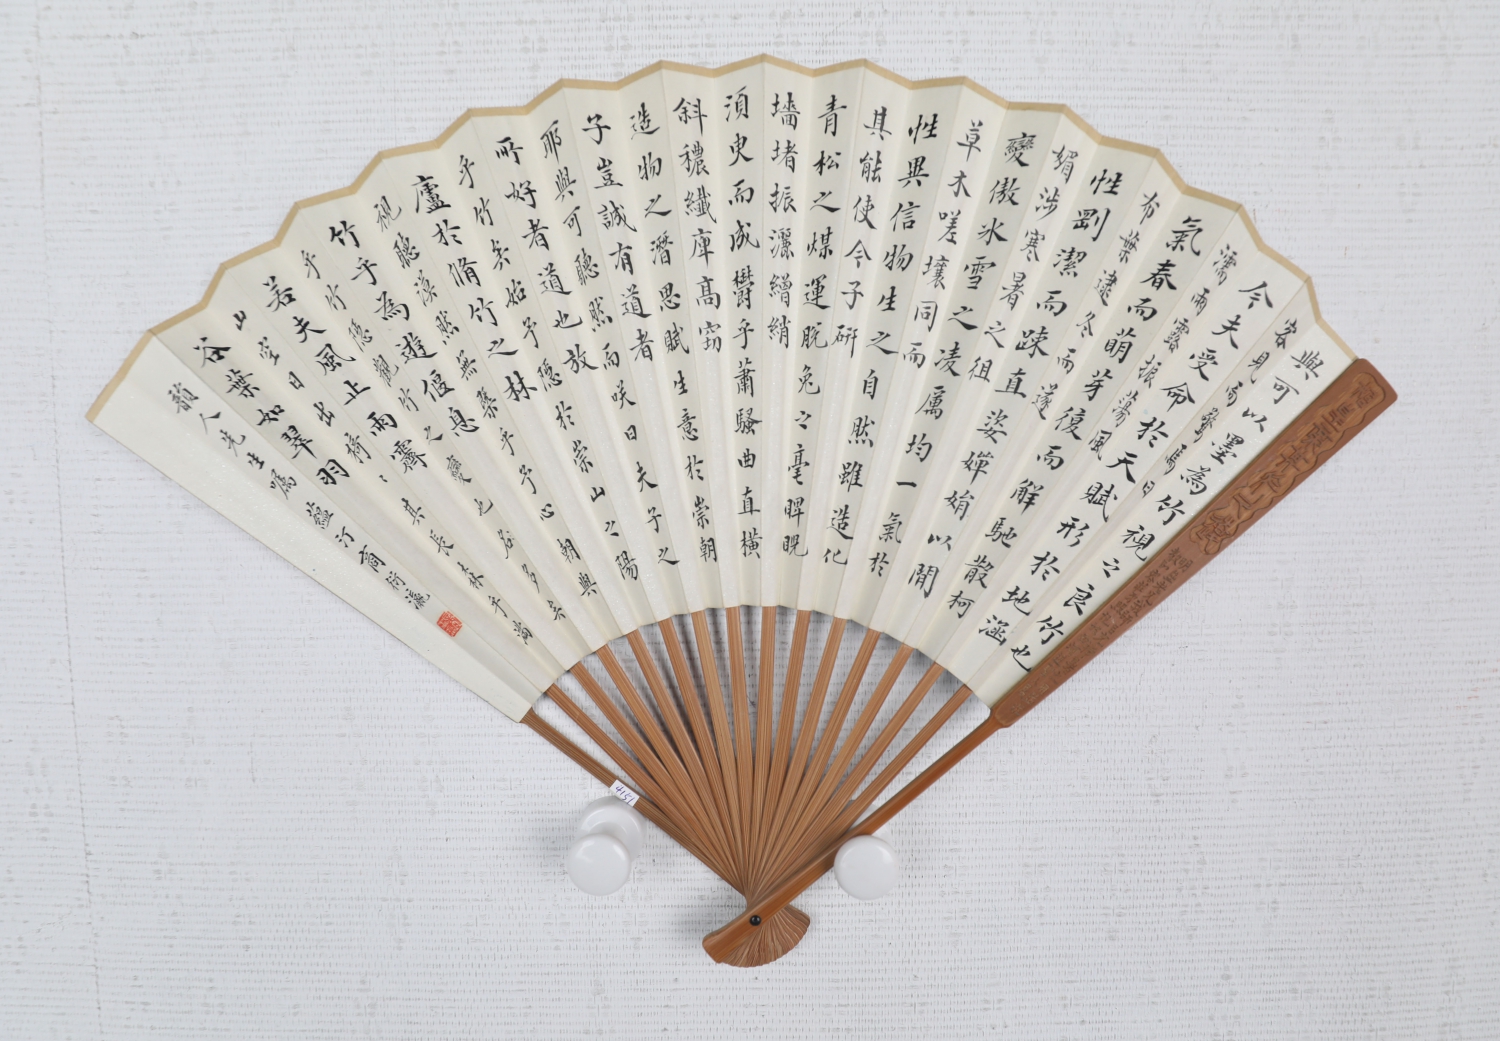 與可以墨為竹視之良竹也
客見而驚焉曰
今夫受命於天賦形於地涵
濡雨露振蕩風
氣春而萌芽復而解馳散柯
布葉逮冬而遂
性剛潔而踈直姿嬋娟以閒
媚涉寒暑之徂
變傲氷雪之凌厲均一氣於
草木嗟壤同而
性異信物生之自然雖造化
其能使今子研
青松之煤運脫兔之毫睥睨
墻堵振灑繒綃
須臾而成鬱乎蕭騷曲直橫
斜穠纖庳高竊
造物之潛思賦生意於崇朝
子豈誠有道者
耶與可聽然而咲曰夫子之
所好者道也放
乎竹矣始予隱於崇山之陽
廬於脩竹之林
視聽漠然無槩乎予心朝與
竹乎為遊偃息
乎竹隱觀竹之變也多矣
若夫風止雨霽
山空日出猗猗其長森乎滿
谷葉如翠羽
韻人先生囑 蘊汀商衍瀛
4151